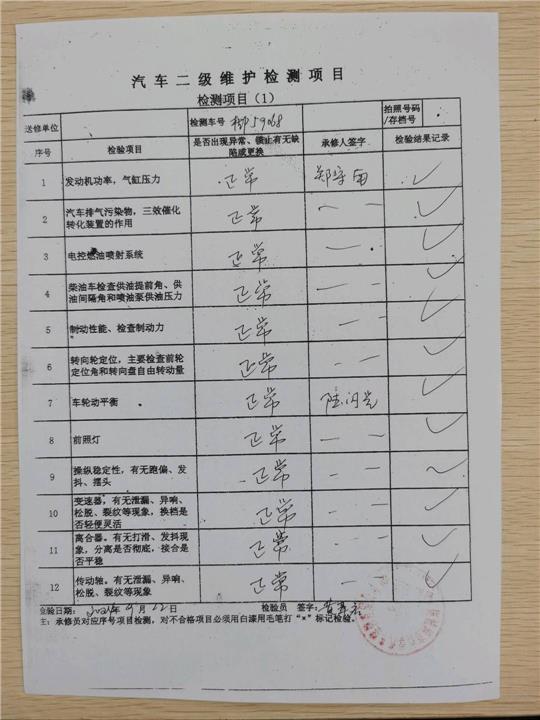 汽车二级维护检测项目
检测项目(1)
送修单位 检测车号 59068 拍照号码/存档号
序号 检验项目 是否出现异常、锁止有无缺陷或更换 承修人签字 检验结果记录
1 发动机功率，气缸压力 正常 ✓
2 汽车排气污染物，三效催化
转化装置的作用 正常 — — ✓
3 电控燃油喷射系统 正常 — — ✓
4 柴油车检查供油提前角、供
油间隔角和喷油泵供油压力 正常 — — ✓
5 制动性能、检查制动力 正常 — — ✓
6 转向轮定位，主要检查前轮
定位角和转向盘自由转动量 正常 — — ✓
7 车轮动平衡 正常 陆闪光 ✓
8 前照灯 正常 — — ✓
9 操纵稳定性，有无跑偏、发
抖、摆头 正常 — — ✓
10 变速器，有无泄漏、异响、
松脱、裂纹等现象，换档是
否轻便灵活 正常 — — ✓
11 离合器。有无打滑、发抖现
象，分离是否彻底、接合是
否平稳 正常 — — ✓
12 传动轴。有无泄漏、异响、
松脱、裂纹等现象 正常 — ✓
验日期： 2021年9月22日 检验员 签字：
主：承修员对应序号项目检测，对不合格项目必须用白漆用毛笔打“×”标记检验。